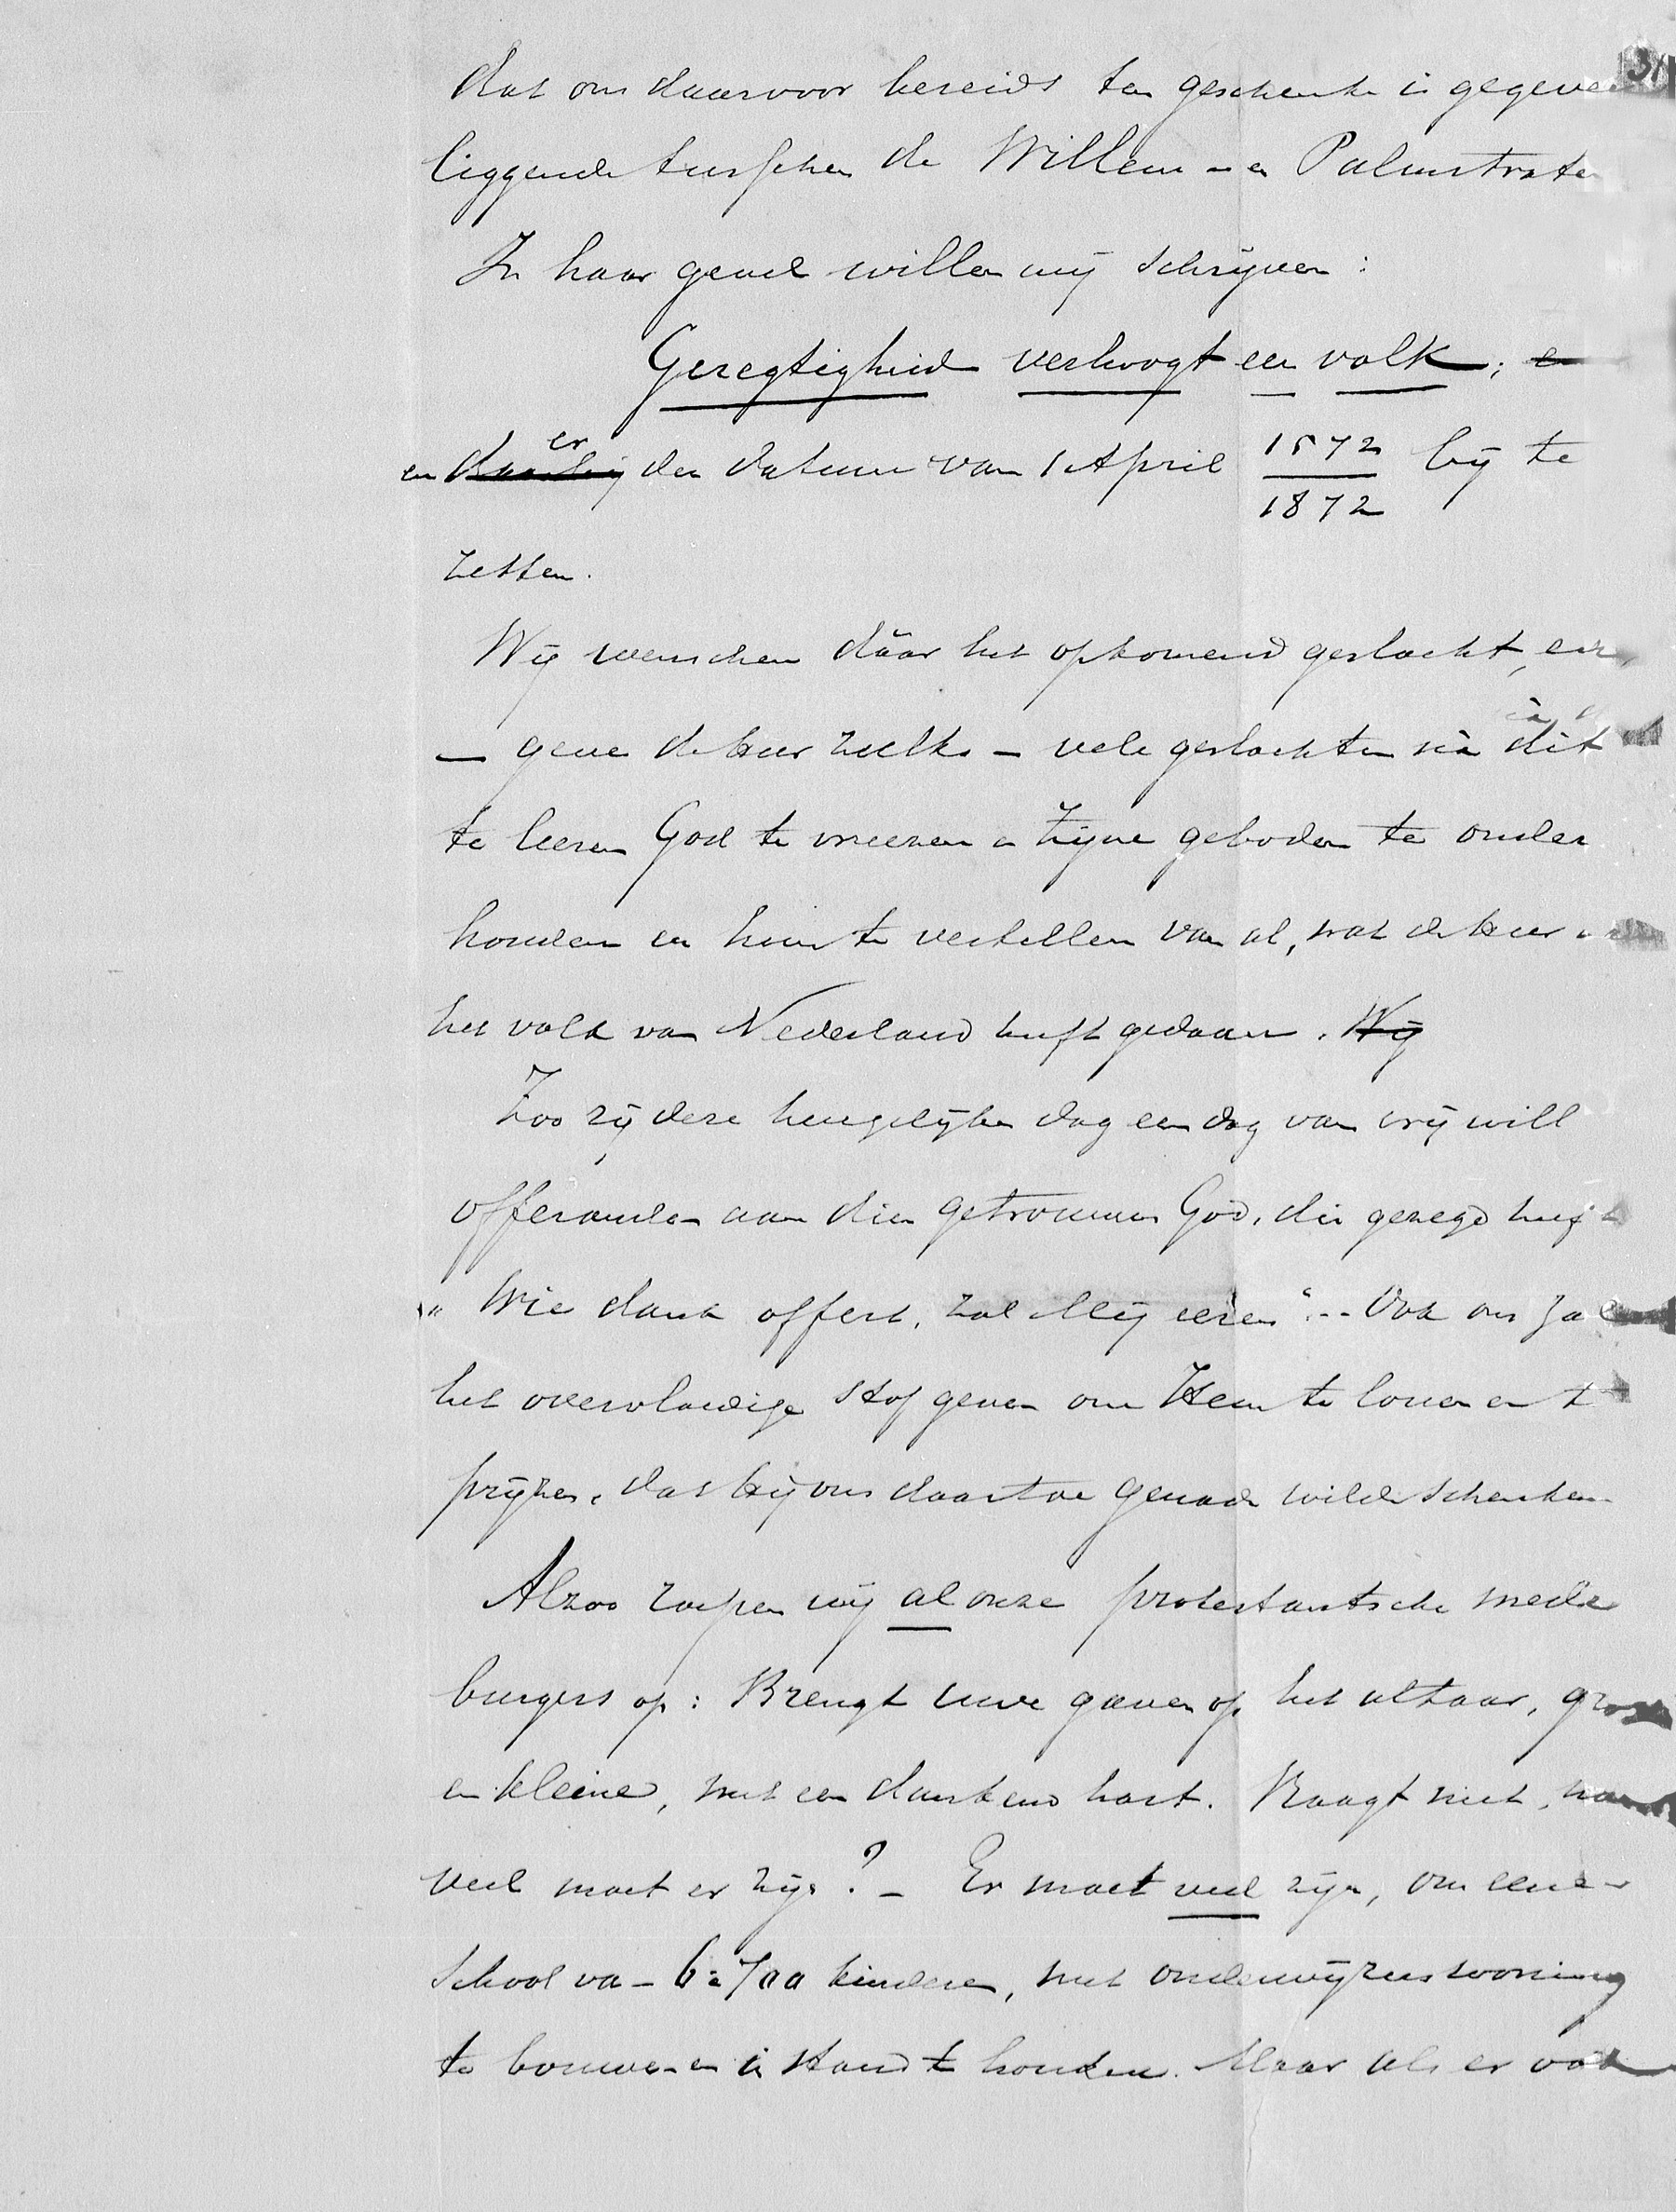 31
dat ons daarvoor bereids ten geschenke is gegeve
liggende tusschen de Willem- en Palmstraten
In haar gevel willen wij schrijven:
Geregtigheid verhoogt een volk; en
en daarbij er den datum van 1 April 1572 bij te
1872
zetten.
Wij wenschen dáár het opkomend geslacht, en,
— geve de Heer zulks — vele geslachten ná dit
te leeren God te vreezen en Zijne geboden te onder
houden en hun te vertellen van al, wat de Heer
het volk van Nederland heeft gedaan. Wij
Zoo zij deze heugelijke dag een dag van vrijwill
offeranden aan dien getrouwen God, die gezegd heeft
„Wie dank offert, zal Mij eeren“. — Ook ons zal
het overvloedige stof geven om Hem te loven en t
prijzen, dat Hij ons daartoe genade wilde schenken
Alzoo roepen wij al onze protestantsche mede
burgers op: Brengt uwe gaven op het altaar, gro
en kleine, met een dankend hart. Vraagt niet,
veel moet er zijn? — Er moet veel zijn, om eene
school van 6 à 700 kinderen, met onderwijzerswoning
te bouwen en in stand te houden. Maar als er ook